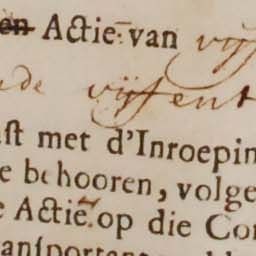 en Actie van vijf
nde vijfent
ſt met d'Inroepin
e behooren, volge
e Actie op die Con
ranſporten